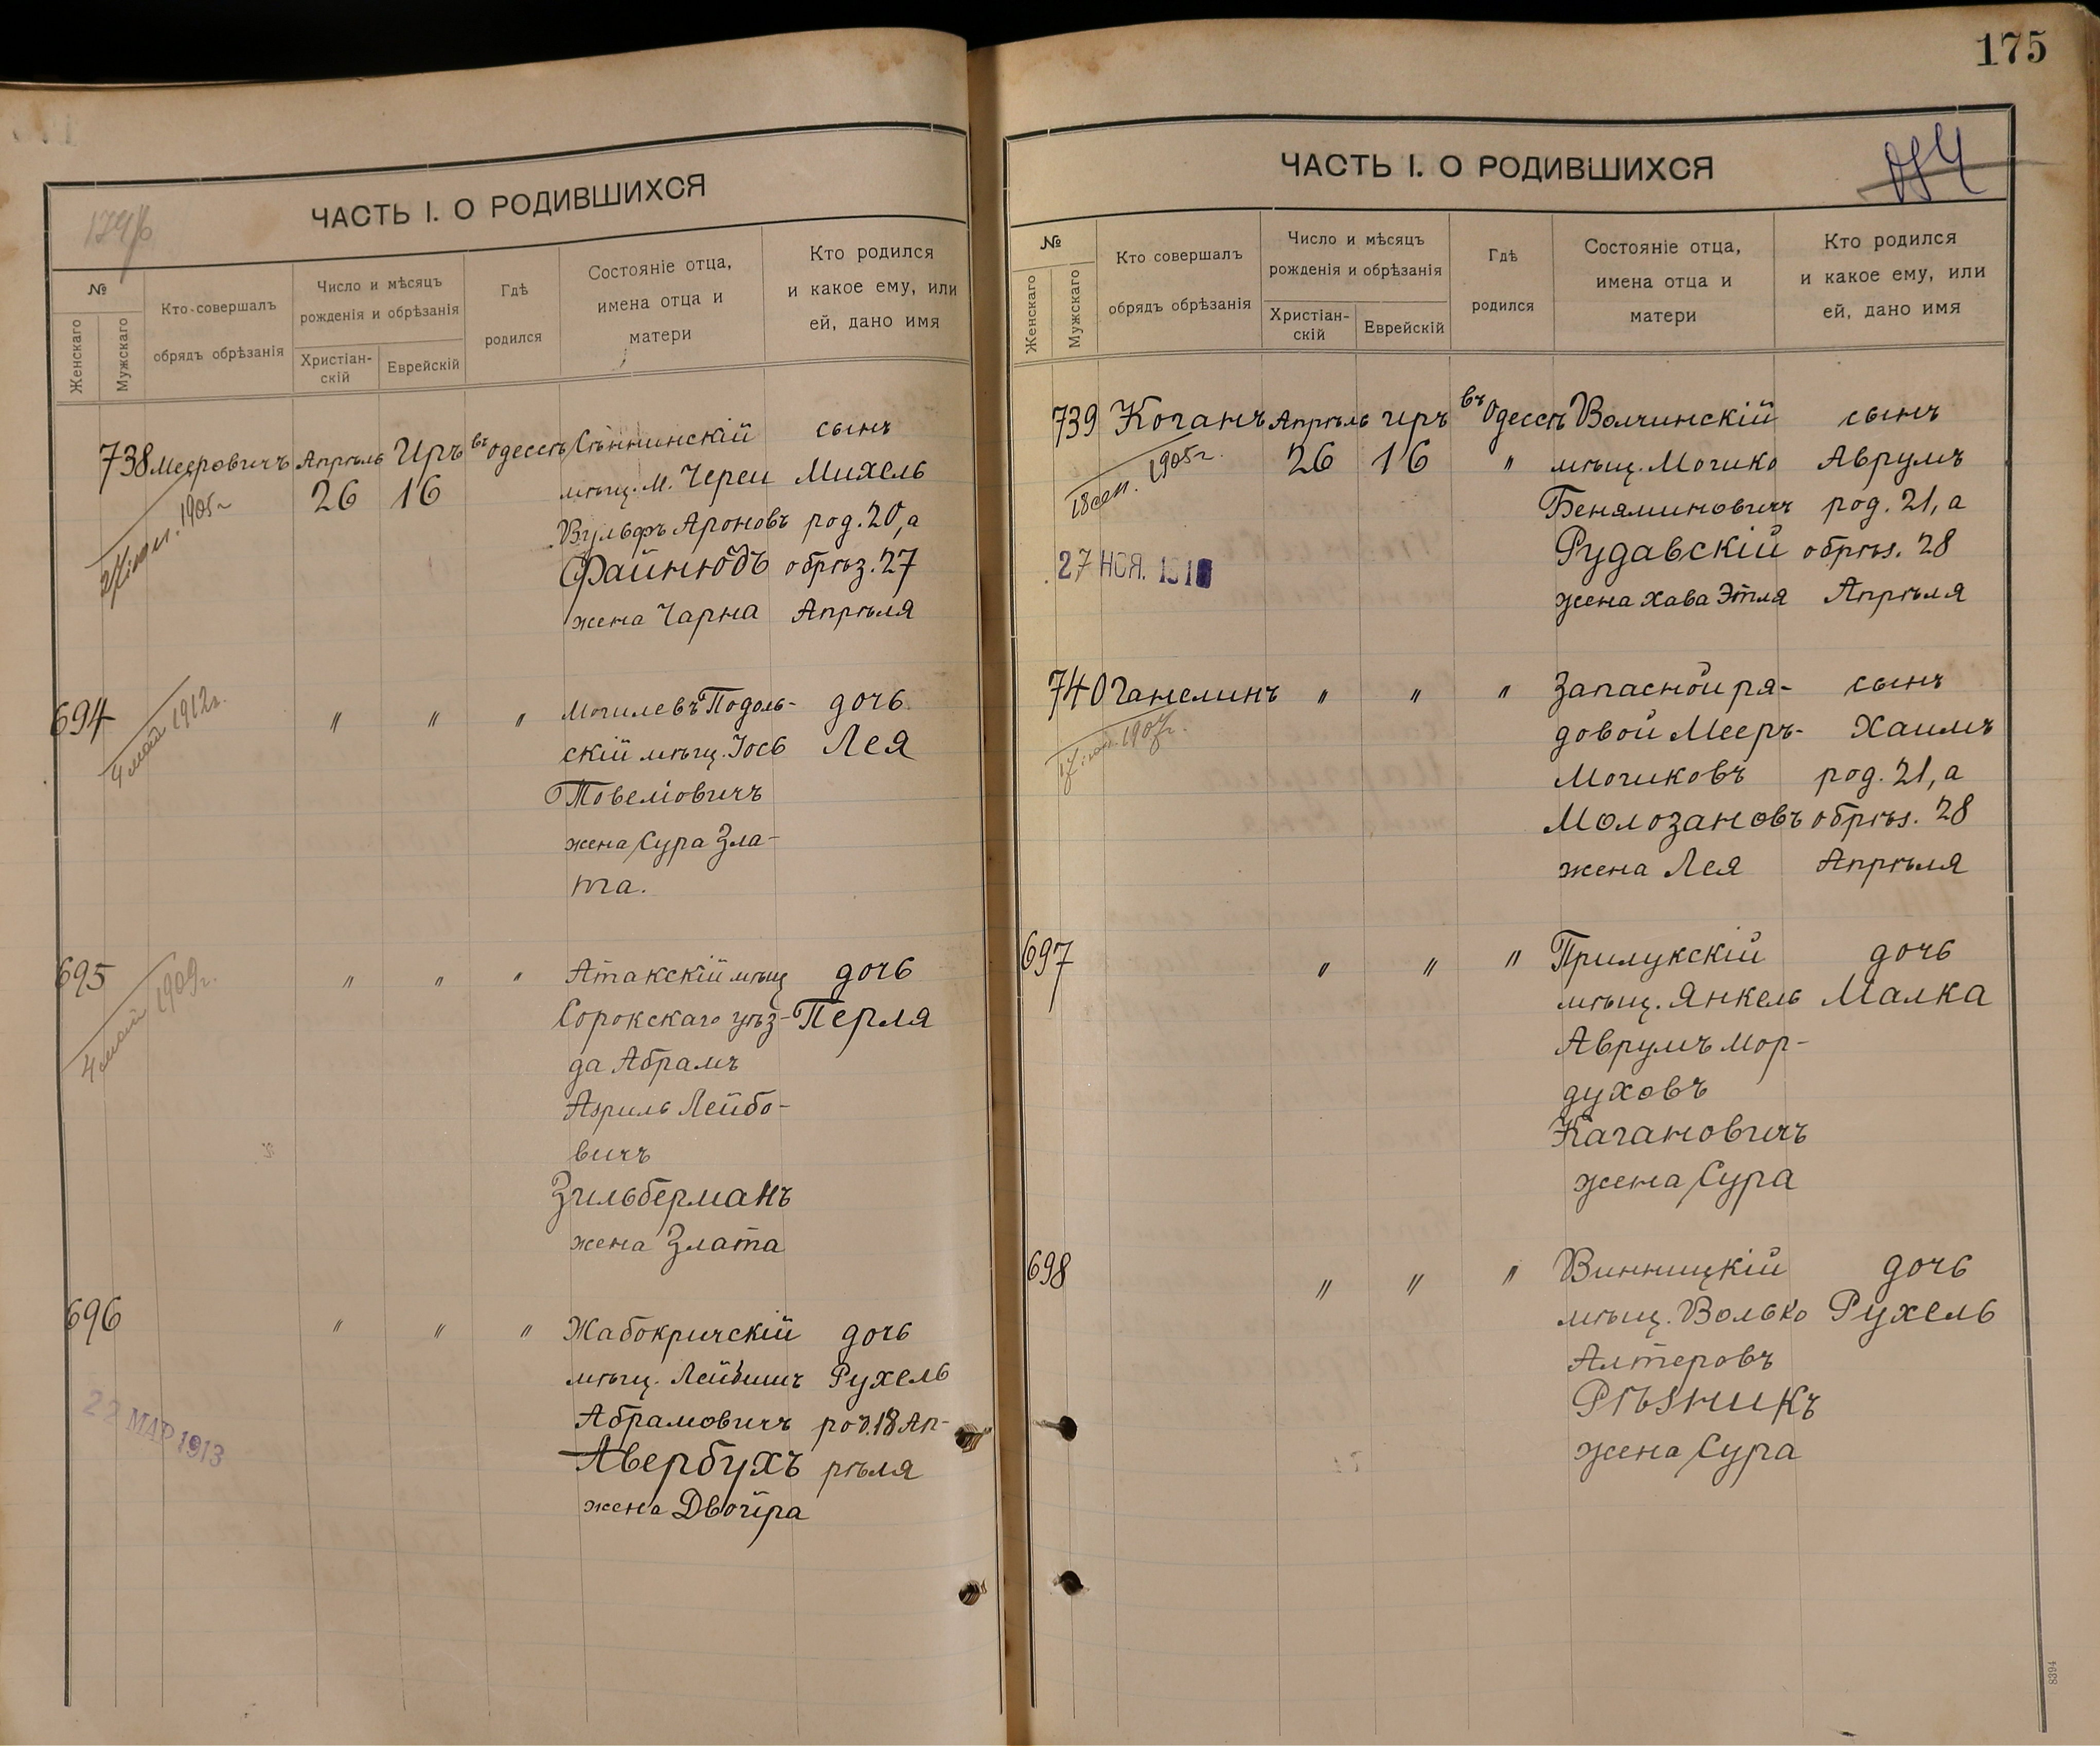 175
ЧАСТЬ I. О РОДИВШИХСЯ
№
Женскаго
Мужскаго
Кто совершалъ
обрядъ обрѣзанія
Число и мѣсяцъ
рожденія и обрѣзанія
Христіан-
скій
Еврейскій
Гдѣ
родился
Состояніе отца,
имена отца и
матери
Кто родился
и какое ему, или
ей, дано имя
738 Мееровичъ Апрѣль Иръ въ Одессѣ Сѣннинскій сынъ
26 16 мѣщ. м. Череи Михель
1905 г
Вульфъ Ароновъ род. 20, а
Файнюдъ обрѣз. 27
жена Чарна Апрѣля
694 " " " Могилевъ Подоль- дочь
4 май 1912 г.
скій мѣщ. Іось Лея
Товеліовичъ
жена Сура Зла-
та.
695 " " " Атакскій мѣщ дочь
4 май 1909 г.
Сорокскаго уѣз- Перля
да Абрамъ
Азриль Лейбо-
вичъ
Зильберманъ
жена Злата
696 " " " Жабокричскій дочь
мѣщ. Лейбишъ Рухель
Абрамовичъ род. 18 Ап-
22 МАР 1913
Авербухъ рѣля
жена Двойра
ЧАСТЬ I. О РОДИВШИХСЯ
№
Женскаго
Мужскаго
Кто совершалъ
обрядъ обрѣзанія
Число и мѣсяцъ
рожденія и обрѣзанія
Христіан-
скій
Еврейскій
Гдѣ
родился
Состояніе отца,
имена отца и
матери
Кто родился
и какое ему, или
ей, дано имя
739 Коганъ Апрѣль иръ въ Одессѣ Волчинскій сынъ
26 16 " мѣщ. Мошко Аврумъ
18 сен. 1905 г.
Беняминовичъ род. 21, а
27 НОЯ.
Рудавскій обрѣз. 28
жена Хава Этля Апрѣля
740 Ганелинъ " " " Запасной ря- сынъ
1907 г.
довой Мееръ- Хаимъ
Мошковъ род. 21, а
Молозановъ обрѣз. 28
жена Лея Апрѣля
697 " " " Прилукскій дочь
мѣщ. Янкель Малка
Аврумъ Мор-
духовъ
Кагановичъ
жена Сура
698 " " " Винницкій дочь
мѣщ. Волько Рухель
Алтеровъ
Рѣзникъ
жена Сура
8394